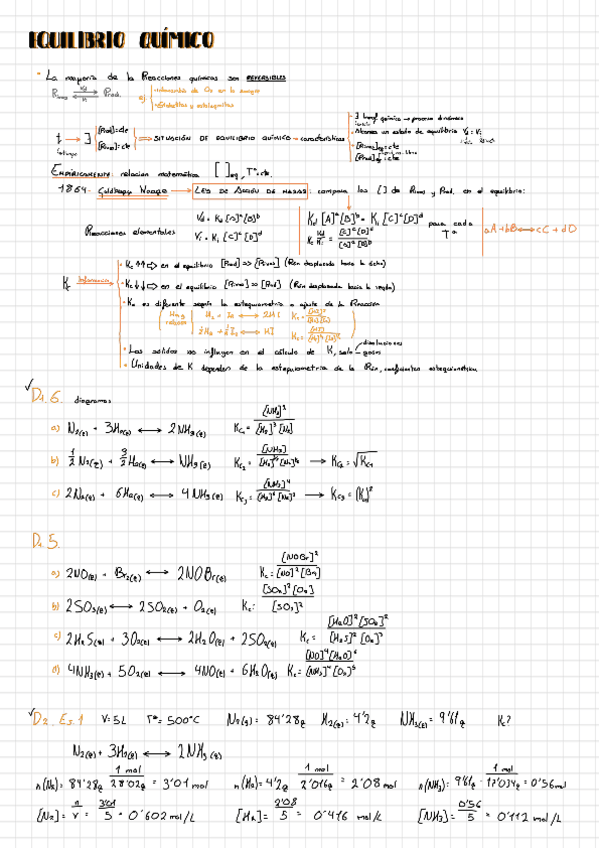 EQUILIBRIO QUÍMICO
· La mayoría de la Reacciones químicas son REVERSIBLES
Prod. ej.
en la sangre
[Prod]=cte
[Reac]=cte
SITUACIÓN DE EQUILIBRIO QUÍMICO → características
químico → proceso dinámico
un estado de equilibrio Vd = Vi
EMPÍRICAMENTE: relacion matemática [ ]eq, Tª cte.
1864
LEY DE ACCIÓN DE MASAS: compara las [ ] de Reac y Prod. en el equilibrio:
Reacciones elementales
Vd = Kd [A]ª[B]ᵇ
Vi = Ki [C]ᶜ[D]ᵈ
Kd [A]ª[B]ᵇ = Ki [C]ᶜ[D]ᵈ
para cada Tª
aA + bB ⟷ cC + dD
Kc
· Kc ↑↑ ⇨ en el equilibrio [Prod] >> [Reac] (Rxn desplazada hacia la dcha)
· Kc ↓↓ ⇨ en el equilibrio [Reac] >> [Prod]
· Kc es diferente según la estequiometria o ajuste de la Reacción
H₂ + I₂ ⟷ 2HI
½H₂ + ½I₂ ⟷ HI
· Los sólidos no influyen en el cálculo de K, solo disoluciones gases
· Unidades de K dependen de la estequiometria de la Rxn, coeficientes estequiométricos
✓ D1.6. diagramas
a) N₂(g) + 3H₂(g) ⟷ 2NH₃(g) Kc₁ = [NH₃]²/[H₂]³[N₂]
b) 1/2 N₂(g) + 3/2 H₂(g) ⟷ NH₃(g) → Kc₂ = √Kc₁
c) 2N₂(g) + 6H₂(g) ⟷ 4NH₃(g) Kc₃ = [NH₃]⁴/[H₂]⁶[N₂]² → Kc₃ = (Kc₁)²
D1.5.
a) 2NO(g) + Br₂(g) ⟷ 2NOBr(g) Kc = [NOBr]²/[NO]²[Br₂]
b) 2SO₃(g) ⟷ 2SO₂(g) + O₂(g) Kc = [SO₂]²[O₂]/[SO₃]²
c) 2H₂S(g) + 3O₂(g) ⟷ 2H₂O(g) + 2SO₂(g) Kc = [H₂O]²[SO₂]²/[H₂S]²[O₂]³
d) 4NH₃(g) + 5O₂(g) ⟷ 4NO(g) + 6H₂O(g) Kc = [NO]⁴[H₂O]⁶/[NH₃]⁴[O₂]⁵
✓ D2. Ej.1 V=5L Tª=500ºC N₂(g) = 84'28g H₂(g) = 4'2g NH₃(g) = 9'61g K?
N₂(g) + 3H₂(g) ⟷ 2NH₃(g)
n(N₂) = 84'28g · 1 mol/28'02g = 3'01 mol n(H₂) = 4'2g · 1 mol/2'016g = 2'08 mol n(NH₃) = 9'61g · 1 mol/17'034g = 0'56mol
[N₂] = n/V = 3'01/5 = 0'602 mol/L [H₂] = 2'08/5 = 0'416 mol/L [NH₃] = 0'56/5 = 0'112 mol/L